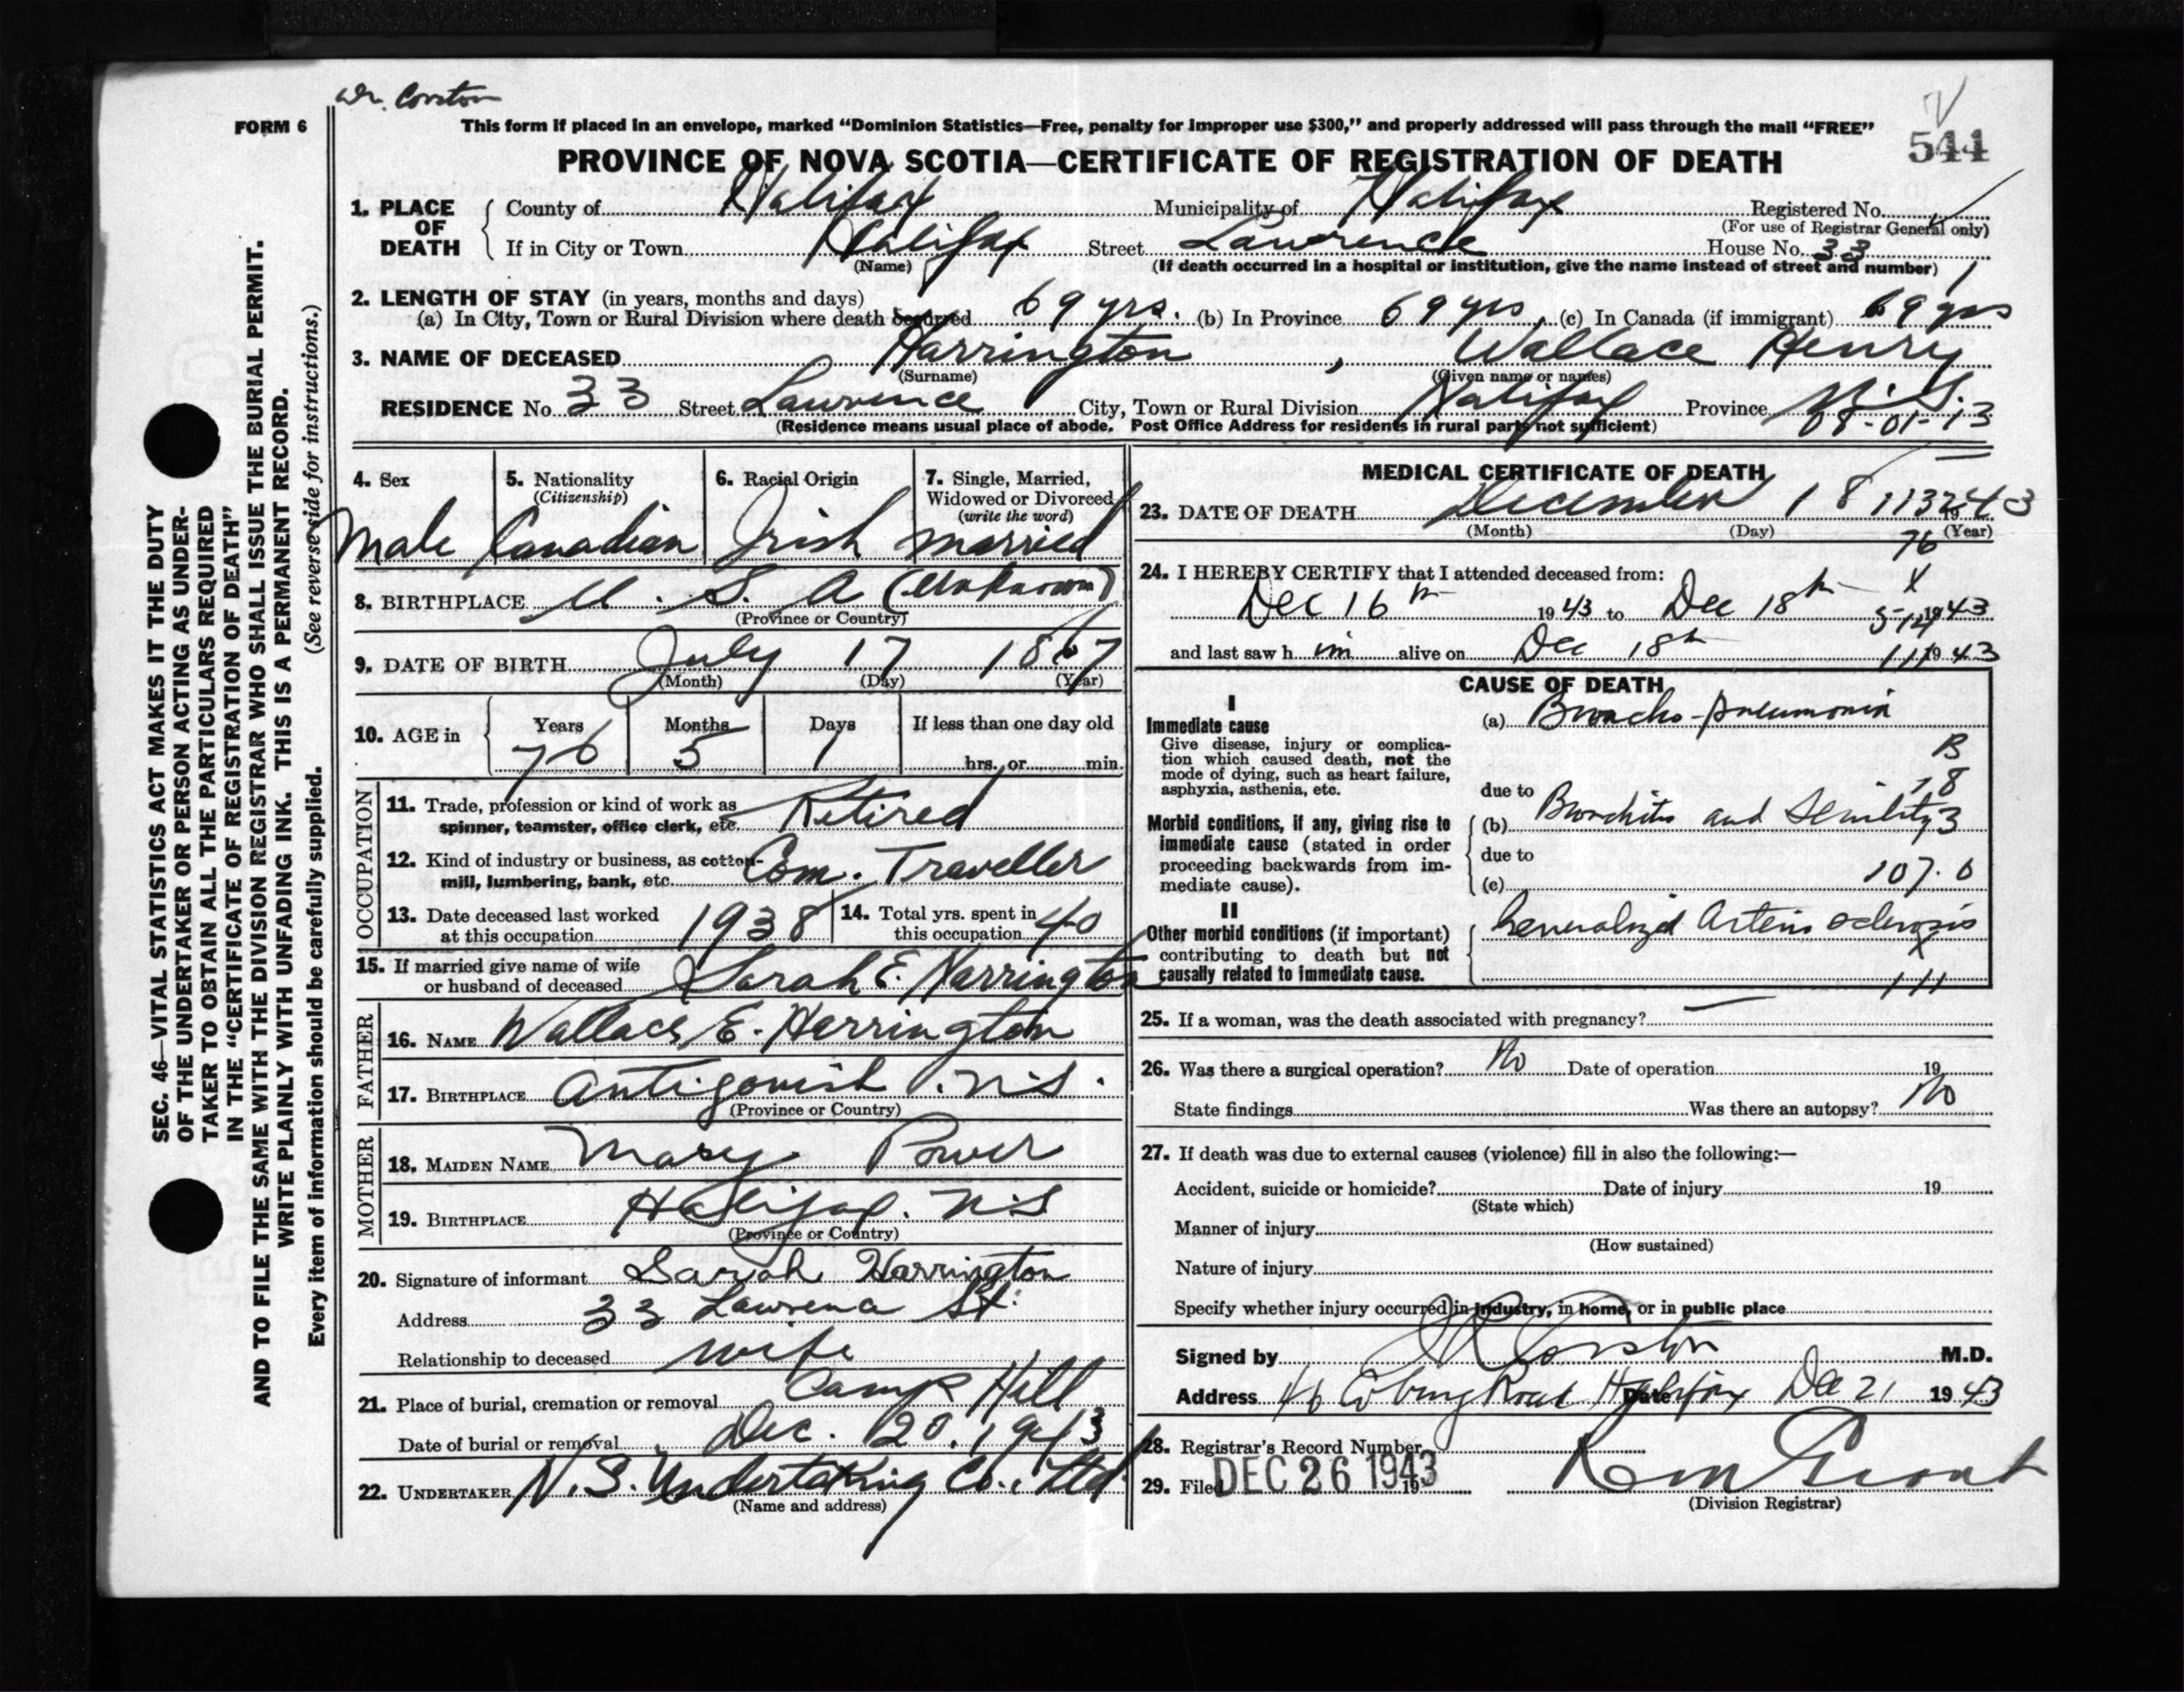 Dr. Corston
FORM 6
This form if placed in an envelope, marked “Dominion Statistics—Free, penalty for improper use $300,” and properly addressed will pass through the mail “FREE”
544
PROVINCE OF NOVA SCOTIA—CERTIFICATE OF REGISTRATION OF DEATH
1. PLACE OF DEATH
County of Halifax Municipality of Halifax Registered No.
(For use of Registrar General only)
If in City or Town Halifax Street Lawrence House No. 33
(Name) (If death occurred in a hospital or institution, give the name instead of street and number)
2. LENGTH OF STAY (in years, months and days)
(a) In City, Town or Rural Division where death occurred 69 yrs. (b) In Province 69 yrs, (c) In Canada (if immigrant) 69 yrs
3. NAME OF DECEASED Harrington, Wallace Henry
(Surname) (Given name or names)
RESIDENCE No. 33 Street Lawrence City, Town or Rural Division Halifax Province N.S.
(Residence means usual place of abode. Post Office Address for residents in rural parts not sufficient)
08-01-13
4. Sex
Male
5. Nationality
(Citizenship)
Canadian
6. Racial Origin
Irish
7. Single, Married,
Widowed or Divorced
(write the word)
married
8. BIRTHPLACE U.S.A (Unknown)
(Province or Country)
9. DATE OF BIRTH July 17 1867
(Month) (Day) (Year)
10. AGE in
Years Months Days If less than one day old
76 5 1 hrs. or min.
OCCUPATION
11. Trade, profession or kind of work as
spinner, teamster, office clerk, etc. Retired
12. Kind of industry or business, as cotton-
mill, lumbering, bank, etc. Com. Traveller
13. Date deceased last worked
at this occupation 1938
14. Total yrs. spent in
this occupation 40
15. If married give name of wife
or husband of deceased Sarah E. Harrington
FATHER
16. NAME Wallace E. Harrington
17. BIRTHPLACE Antigonish N.S.
(Province or Country)
MOTHER
18. MAIDEN NAME Mary Power
19. BIRTHPLACE Halifax. N.S
(Province or Country)
20. Signature of informant Sarah Harrington
Address 33 Lawrence St.
Relationship to deceased wife
21. Place of burial, cremation or removal Camp Hill
Date of burial or removal Dec. 20, 1943
22. UNDERTAKER N.S. Undertaking Co., Ltd
(Name and address)
MEDICAL CERTIFICATE OF DEATH
23. DATE OF DEATH December 18 1943
(Month) (Day) (Year)
76
24. I HEREBY CERTIFY that I attended deceased from:
X
Dec 16th 1943 to Dec 18th 1943
and last saw him alive on Dec 18th 1943
CAUSE OF DEATH
I
Immediate cause
Give disease, injury or complica-
tion which caused death, not the
mode of dying, such as heart failure,
asphyxia, asthenia, etc.
(a) Broncho-pneumonia
B
due to
Morbid conditions, if any, giving rise to
immediate cause (stated in order
proceeding backwards from im-
mediate cause).
(b) Bronchitis and Senility
due to
(c) 107.0
II
Other morbid conditions (if important)
contributing to death but not
causally related to immediate cause.
Generalized Arterio sclerosis
X
111
25. If a woman, was the death associated with pregnancy? —
26. Was there a surgical operation? No Date of operation 19
State findings Was there an autopsy? No
27. If death was due to external causes (violence) fill in also the following:—
Accident, suicide or homicide? Date of injury 19
(State which)
Manner of injury
(How sustained)
Nature of injury
Specify whether injury occurred in industry, in home, or in public place
Signed by Corston M.D.
Address 46 Coburg Road Halifax Date Dec 21 1943
28. Registrar's Record Number
29. Filed DEC 26 1943 19
(Division Registrar)
SEC. 46—VITAL STATISTICS ACT MAKES IT THE DUTY
OF THE UNDERTAKER OR PERSON ACTING AS UNDER-
TAKER TO OBTAIN ALL THE PARTICULARS REQUIRED
IN THE “CERTIFICATE OF REGISTRATION OF DEATH”
AND TO FILE THE SAME WITH THE DIVISION REGISTRAR WHO SHALL ISSUE THE BURIAL PERMIT.
WRITE PLAINLY WITH UNFADING INK. THIS IS A PERMANENT RECORD.
Every item of information should be carefully supplied. (See reverse side for instructions.)